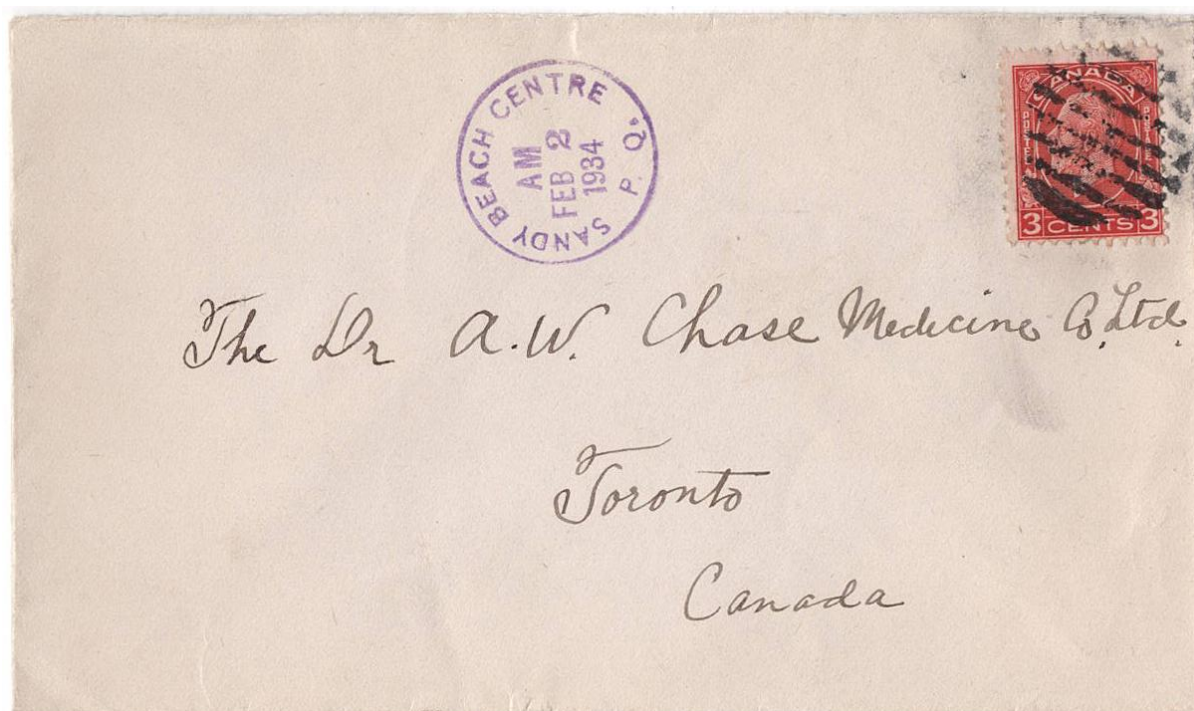 SANDY BEACH CENTRE
AM
FEB 2
1934
P. Q.
CANADA
3 CENTS 3
The Dr A.W. Chase Medicine Co, Ltd.
Toronto
Canada